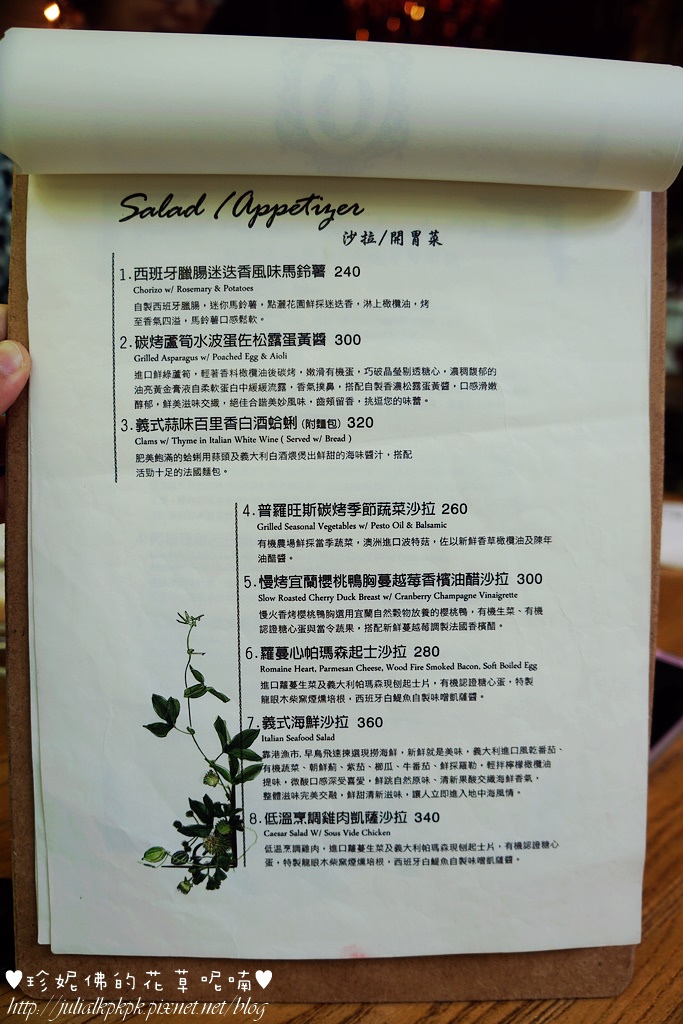 Salad / Appetizer
沙拉/開胃菜
1.西班牙臘腸迷迭香風味馬鈴薯 240
Chorizo w/ Rosemary & Potatoes
自製西班牙臘腸，迷你馬鈴薯，點灑花園鮮採迷迭香，淋上橄欖油，烤
至香氣四溢，馬鈴薯口感鬆軟。
2.碳烤蘆筍水波蛋佐松露蛋黃醬 300
Grilled Asparagus w/ Poached Egg & Aioli
進口鮮綠蘆筍，輕著香料橄欖油後碳烤，嫩滑有機蛋，巧破晶瑩剔透糖心，濃稠馥郁的
油亮黃金膏液自柔軟蛋白中緩緩流露，香氣撲鼻，搭配自製香濃松露蛋黃醬，口感滑嫩
醇郁，鮮美滋味交織，絕佳合諧美妙風味，齒頰留香，挑逗您的味蕾。
3.義式蒜味百里香白酒蛤蜊 (附麵包) 320
Clams w/ Thyme in Italian White Wine ( Served w/ Bread )
肥美飽滿的蛤蜊用蒜頭及義大利白酒煨煲出鮮甜的海味醬汁，搭配
活勁十足的法國麵包。
4.普羅旺斯碳烤季節蔬菜沙拉 260
Grilled Seasonal Vegetables w/ Pesto Oil & Balsamic
有機農場鮮採當季蔬菜，澳洲進口波特菇，佐以新鮮香草橄欖油及陳年
油醋醬。
5.慢烤宜蘭櫻桃鴨胸蔓越莓香檳油醋沙拉 300
Slow Roasted Cherry Duck Breast w/ Cranberry Champagne Vinaigrette
慢火香烤櫻桃鴨胸選用宜蘭自然穀物放養的櫻桃鴨，有機生菜、有機
認證糖心蛋與當令蔬果，搭配新鮮蔓越莓調製法國香檳醋。
6.羅蔓心帕瑪森起士沙拉 280
Romaine Heart, Parmesan Cheese, Wood Fire Smoked Bacon, Soft Boiled Egg
進口蘿蔓生菜及義大利帕瑪森現刨起士片，有機認證糖心蛋，特製
龍眼木柴窯煙燻培根，西班牙白鯷魚自製味噌凱薩醬。
7.義式海鮮沙拉 360
Italian Seafood Salad
靠港漁市，早鳥飛速揀選現撈海鮮，新鮮就是美味，義大利進口風乾番茄、
有機蔬菜、朝鮮薊、紫茄、櫛瓜、牛番茄、鮮採羅勒，輕拌檸檬橄欖油
提味，微酸口感深受喜愛，鮮跳自然原味、清新果酸交織海鮮香氣，
整體滋味完美交融，鮮甜清新滋味，讓人立即進入地中海風情。
8.低溫烹調雞肉凱薩沙拉 340
Caesar Salad W/ Sous Vide Chicken
低溫烹調雞肉，進口蘿蔓生菜及義大利帕瑪森現刨起士片，有機認證糖心
蛋，特製龍眼木柴窯煙燻培根，西班牙白鯷魚自製味噌凱薩醬。
♥珍妮佛的花草呢喃♥
http://julialkpkpk.pixnet.net/blog